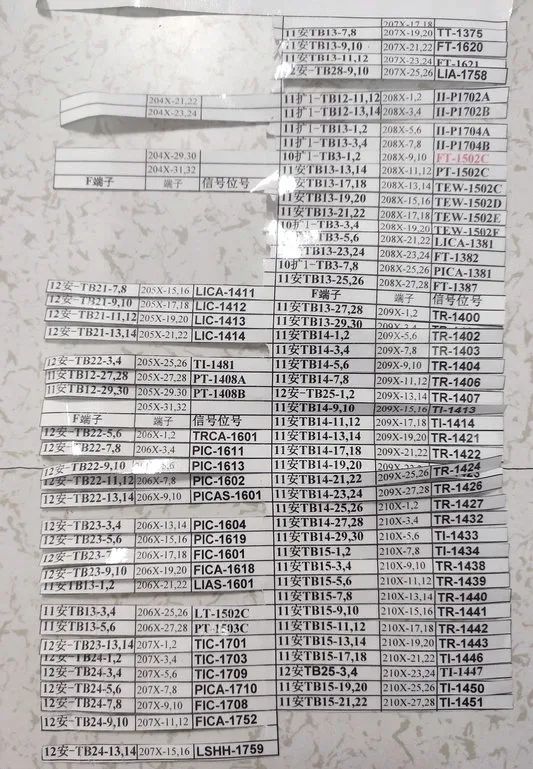 204X-21,22
204X-23,24
204X-29.30
204X-31,32
F端子 端子 信号位号
12安-TB21-7,8 205X-15,16 LICA-1411
12安-TB21-9,10 205X-17,18 LIC-1412
12安-TB21-11,12 205X-19,20 LIC-1413
12安-TB21-13,14 205X-21,22 LIC-1414
12安-TB22-3,4 205X-25,26 TI-1481
11安TB12-27,28 205X-27,28 PT-1408A
11安TB12-29,30 205X-29.30 PT-1408B
205X-31,32
F端子 端子 信号位号
12安-TB22-5,6 206X-1,2 TRCA-1601
12安-TB22-7,8 206X-3,4 PIC-1611
12安-TB22-9,10 206X-5,6 PIC-1613
12安-TB22-11,12 206X-7,8 PIC-1602
12安-TB22-13,14 206X-9,10 PICAS-1601
12安-TB23-3,4 206X-13,14 PIC-1604
12安-TB23-5,6 206X-15,16 PIC-1619
12安-TB23-7 206X-17,18 FIC-1601
12安-TB23-9,10 206X-19,20 FICA-1618
11安TB13-1,2 206X-21,22 LIAS-1601
11安TB13-3,4 206X-25,26 LT-1502C
11安TB13-5,6 206X-27,28 PT-1503C
12安-TB23-13,14 207X-1,2 TIC-1701
12安-TB24-1,2 207X-3,4 TIC-1703
12安-TB24-3,4 207X-5,6 TIC-1709
12安-TB24-5,6 207X-7,8 PICA-1710
12安-TB24-7,8 207X-9,10 FIC-1708
12安-TB24-9,10 207X-11,12 FICA-1752
12安-TB24-13,14 207X-15,16 LSHH-1759
207X-17,18
11安TB13-7,8 207X-19,20 TT-1375
11安TB13-9,10 207X-21,22 FT-1620
11安TB13-11,12 207X-23,24 FT-1621
12安-TB28-9,10 207X-25,26 LIA-1758
11扩1-TB12-11,12 208X-1,2 II-P1702A
11扩1-TB12-13,14 208X-3,4 II-P1702B
11安TB13-1,2 208X-5,6 II-P1704A
11安TB13-3,4 208X-7,8 II-P1704B
10扩1-TB3-1,2 208X-9,10 FT-1502C
11安TB13-13,14 208X-11,12 PT-1502C
11安TB13-17,18 208X-13,14 TEW-1502C
11安TB13-19,20 208X-15,16 TEW-1502D
11安TB13-21,22 208X-17,18 TEW-1502E
10扩1-TB3-3,4 208X-19,20 TEW-1502F
10扩1-TB3-5,6 208X-21,22 LICA-1381
11安TB13-23,24 208X-23,24 FT-1382
10扩1-TB3-7,8 208X-25,26 PICA-1381
11安TB13-25,26 208X-27,28 FT-1387
F端子 端子 信号位号
11安TB13-27,28 209X-1,2 TR-1400
11安TB13-29,30 209X-3,4
11安TB14-1,2 209X-5,6 TR-1402
11安TB14-3,4 209X-7,8 TR-1403
11安TB14-5,6 209X-9,10 TR-1404
11安TB14-7,8 209X-11,12 TR-1406
12安-TB25-1,2 209X-13,14 TR-1407
11安TB14-9,10 209X-15,16 TI-1413
11安TB14-11,12 209X-17,18 TI-1414
11安TB14-13,14 209X-19,20 TR-1421
11安TB14-17,18 209X-21,22 TR-1422
11安TB14-19,20 TR-1424
11安TB14-21,22 209X-25,26
11安TB14-23,24 209X-27,28 TR-1426
11安TB14-25,26 210X-1,2 TR-1427
11安TB14-27,28 210X-3,4 TR-1432
11安TB14-29,30 210X-5,6 TI-1433
11安TB15-1,2 210X-7,8 TI-1434
11安TB15-3,4 210X-9,10 TR-1438
11安TB15-5,6 210X-11,12 TR-1439
11安TB15-7,8 210X-13,14 TR-1440
11安TB15-9,10 210X-15,16 TR-1441
11安TB15-11,12 210X-17,18 TR-1442
11安TB15-13,14 210X-19,20 TR-1443
11安TB15-17,18 210X-21,22 TI-1446
12安TB25-3,4 210X-23,24 TI-1447
11安TB15-19,20 210X-25,26 TI-1450
11安TB15-21,22 210X-27,28 TI-1451